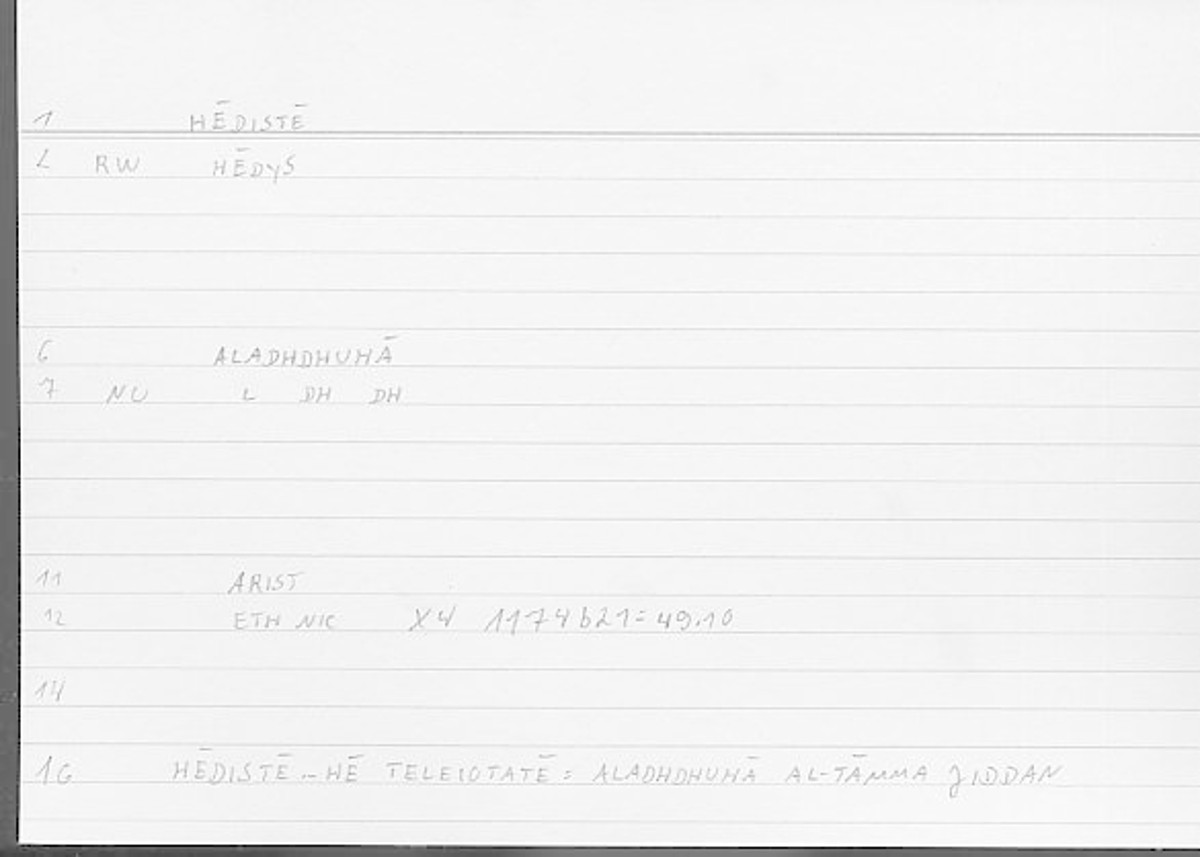 1 HĒDISTĒ
2 RW HĒDYS
6 ALADHDHUHĀ
7 NU L DH DH
11 ARIST
12 ETH NIC X4 1174b21=49.10
14
16 HĒDISTĒ..HĒ TELEIOTATĒ = ALADHDHUHĀ AL-TĀMMA JIDDAN